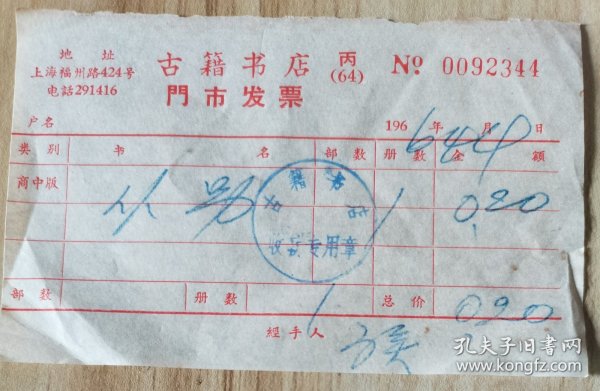 地 址
上海福州路424号
电話291416
古籍书店
門市发票
丙
(64)
№ 0092344
户名
196 年 月 日
类别 书 名 部数 册数 金 额
商中版 1 0.20
古籍书店
专用章
部数 册数 1 总价 0.20
經手人
孔夫子旧书网
www.kongfz.com